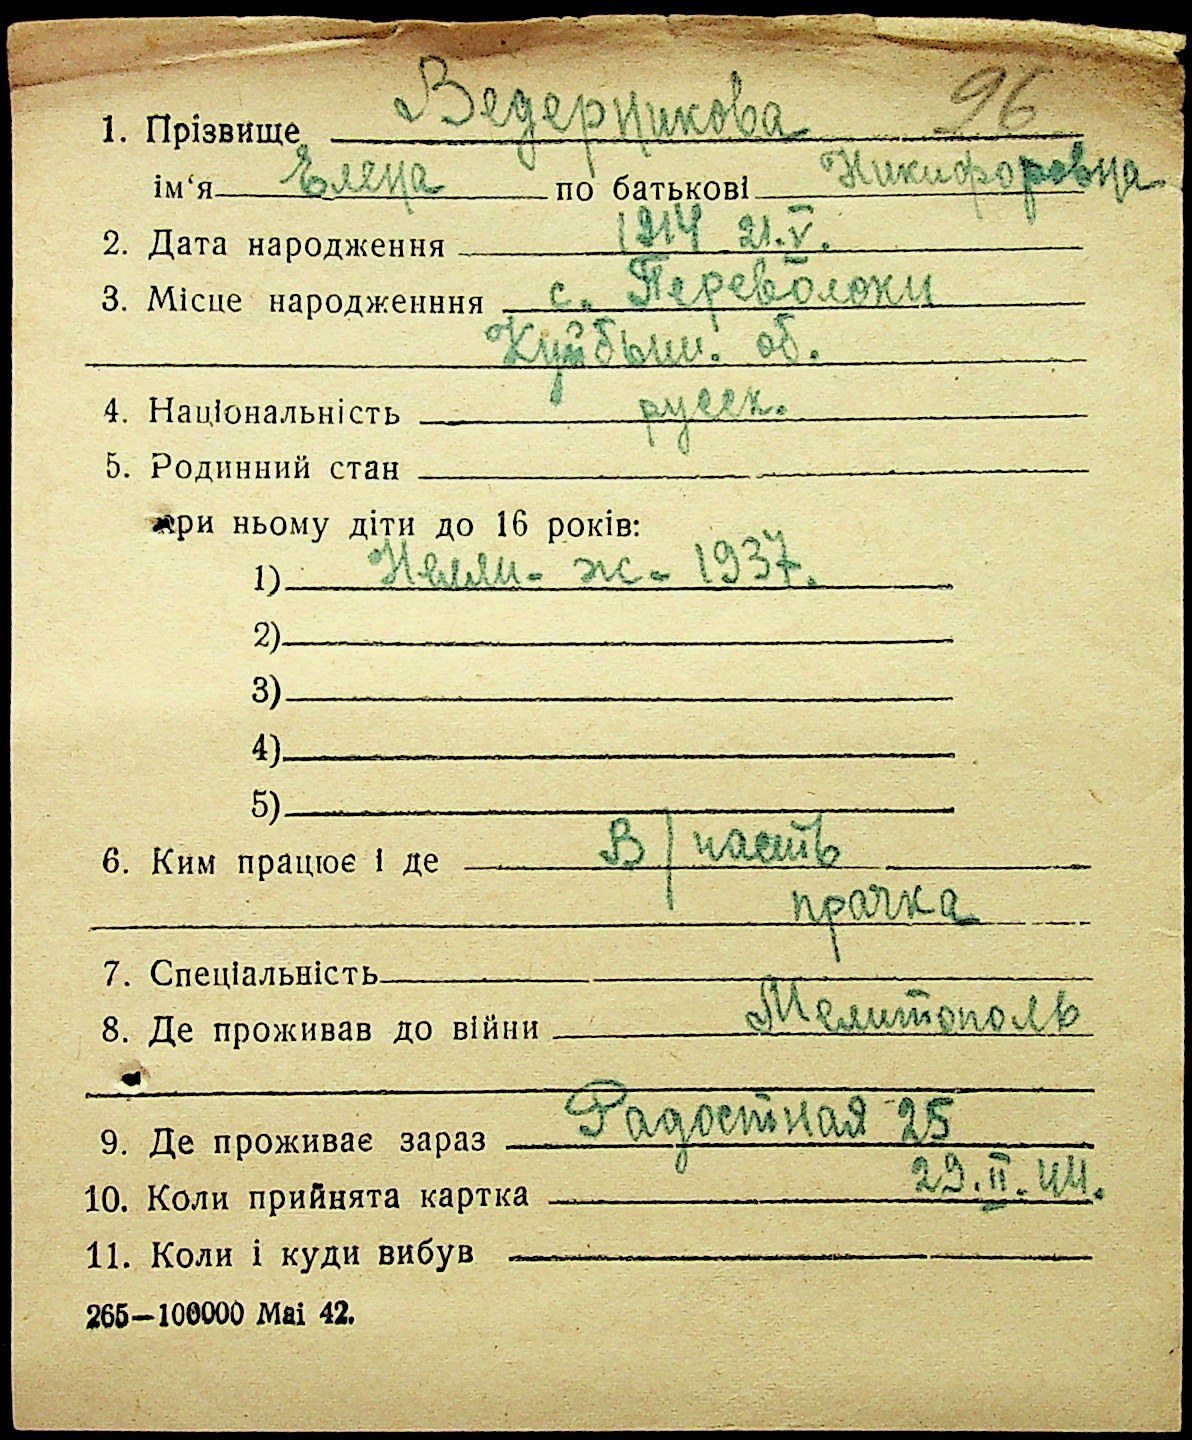 96
1. Прізвище Ведерникова
ім‘я Елена по батькові Никифоровна
2. Дата народження 1914 21.V.
3. Місце народженння с. Переволоки
Куйбыш. об.
4. Національність русск.
5. Родинний стан
при ньому діти до 16 років:
1) Нелли - ж - 1937.
2)
3)
4)
5)
6. Ким працює і де В/часть
прачка
7. Спеціальність
8. Де проживав до війни Мелитополь
9. Де проживає зараз Радостная 25
10. Коли прийнята картка 29.II.44.
11. Коли і куди вибув
265—100000 Маі 42.